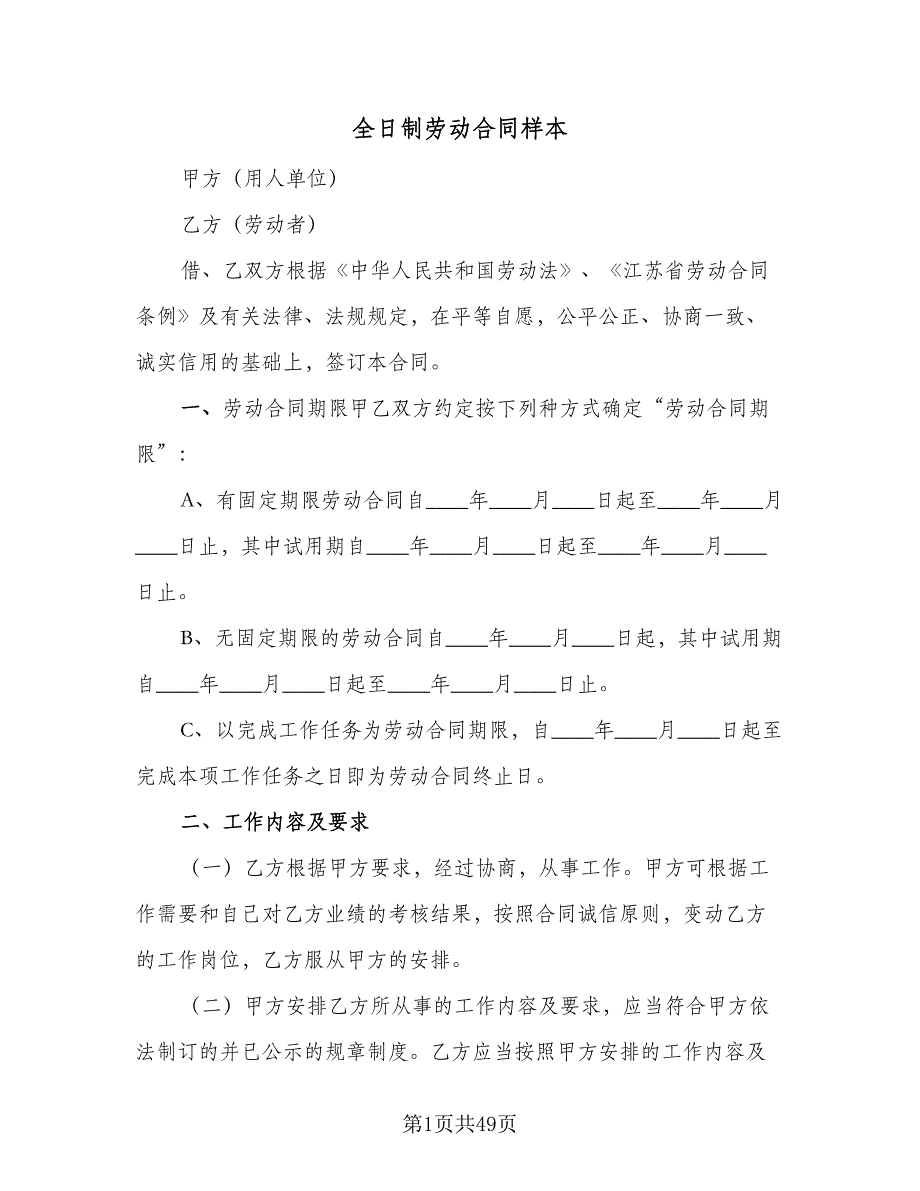 全日制劳动合同样本
甲方（用人单位）
乙方（劳动者）
借、乙双方根据《中华人民共和国劳动法》、《江苏省劳动合同
条例》及有关法律、法规规定，在平等自愿，公平公正、协商一致、
诚实信用的基础上，签订本合同。
一、劳动合同期限甲乙双方约定按下列种方式确定“劳动合同期
限”：
A、有固定期限劳动合同自____年____月____日起至____年____月
____日止，其中试用期自____年____月____日起至____年____月____
日止。
B、无固定期限的劳动合同自____年____月____日起，其中试用期
自____年____月____日起至____年____月____日止。
C、以完成工作任务为劳动合同期限，自____年____月____日起至
完成本项工作任务之日即为劳动合同终止日。
二、工作内容及要求
（一）乙方根据甲方要求，经过协商，从事工作。甲方可根据工
作需要和自己对乙方业绩的考核结果，按照合同诚信原则，变动乙方
的工作岗位，乙方服从甲方的安排。
（二）甲方安排乙方所从事的工作内容及要求，应当符合甲方依
法制订的并已公示的规章制度。乙方应当按照甲方安排的工作内容及
第1页共49页